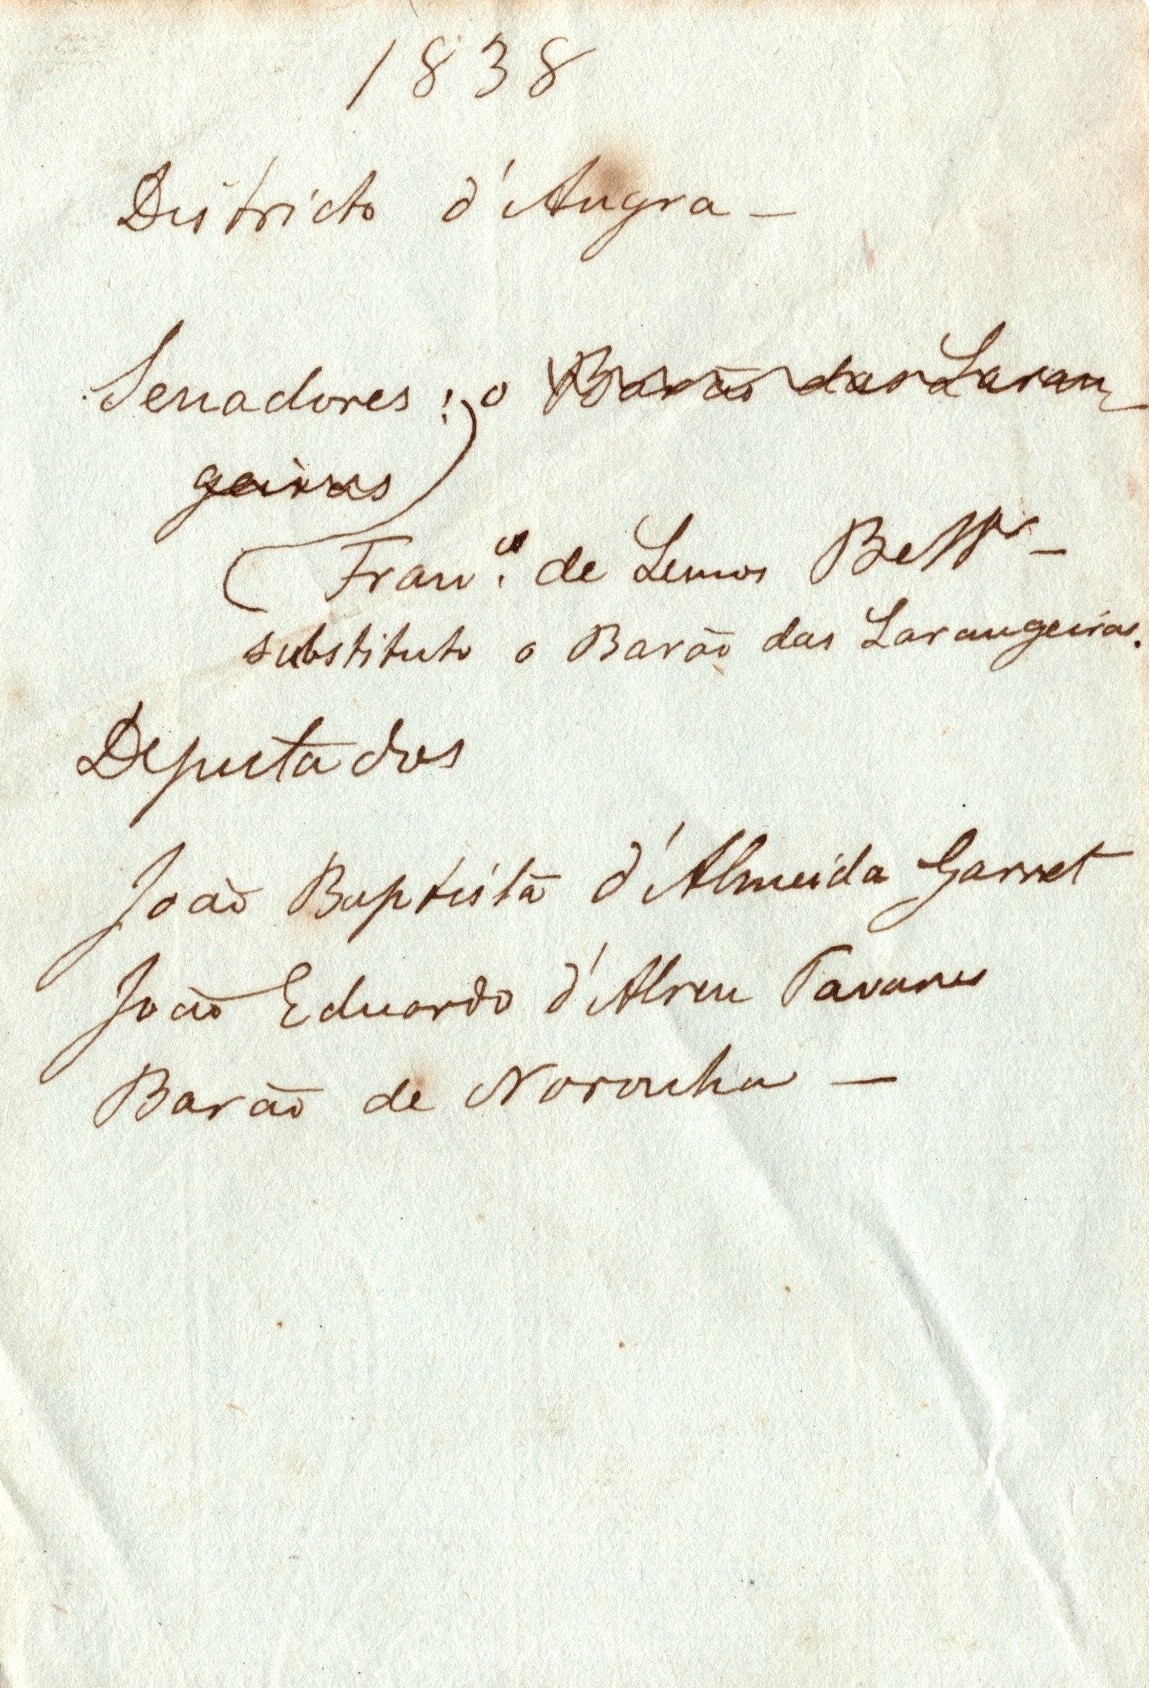 1838
Districto d'Angra —
Senadores: o Barão das Laran
geiras
Fran.co de Lemos Bettr —
substituto o Barão das Larangeiras.
Deputados
João Baptista d'Almeida Garret
João Eduardo d'Abreu Tavares
Barão de Noronha —